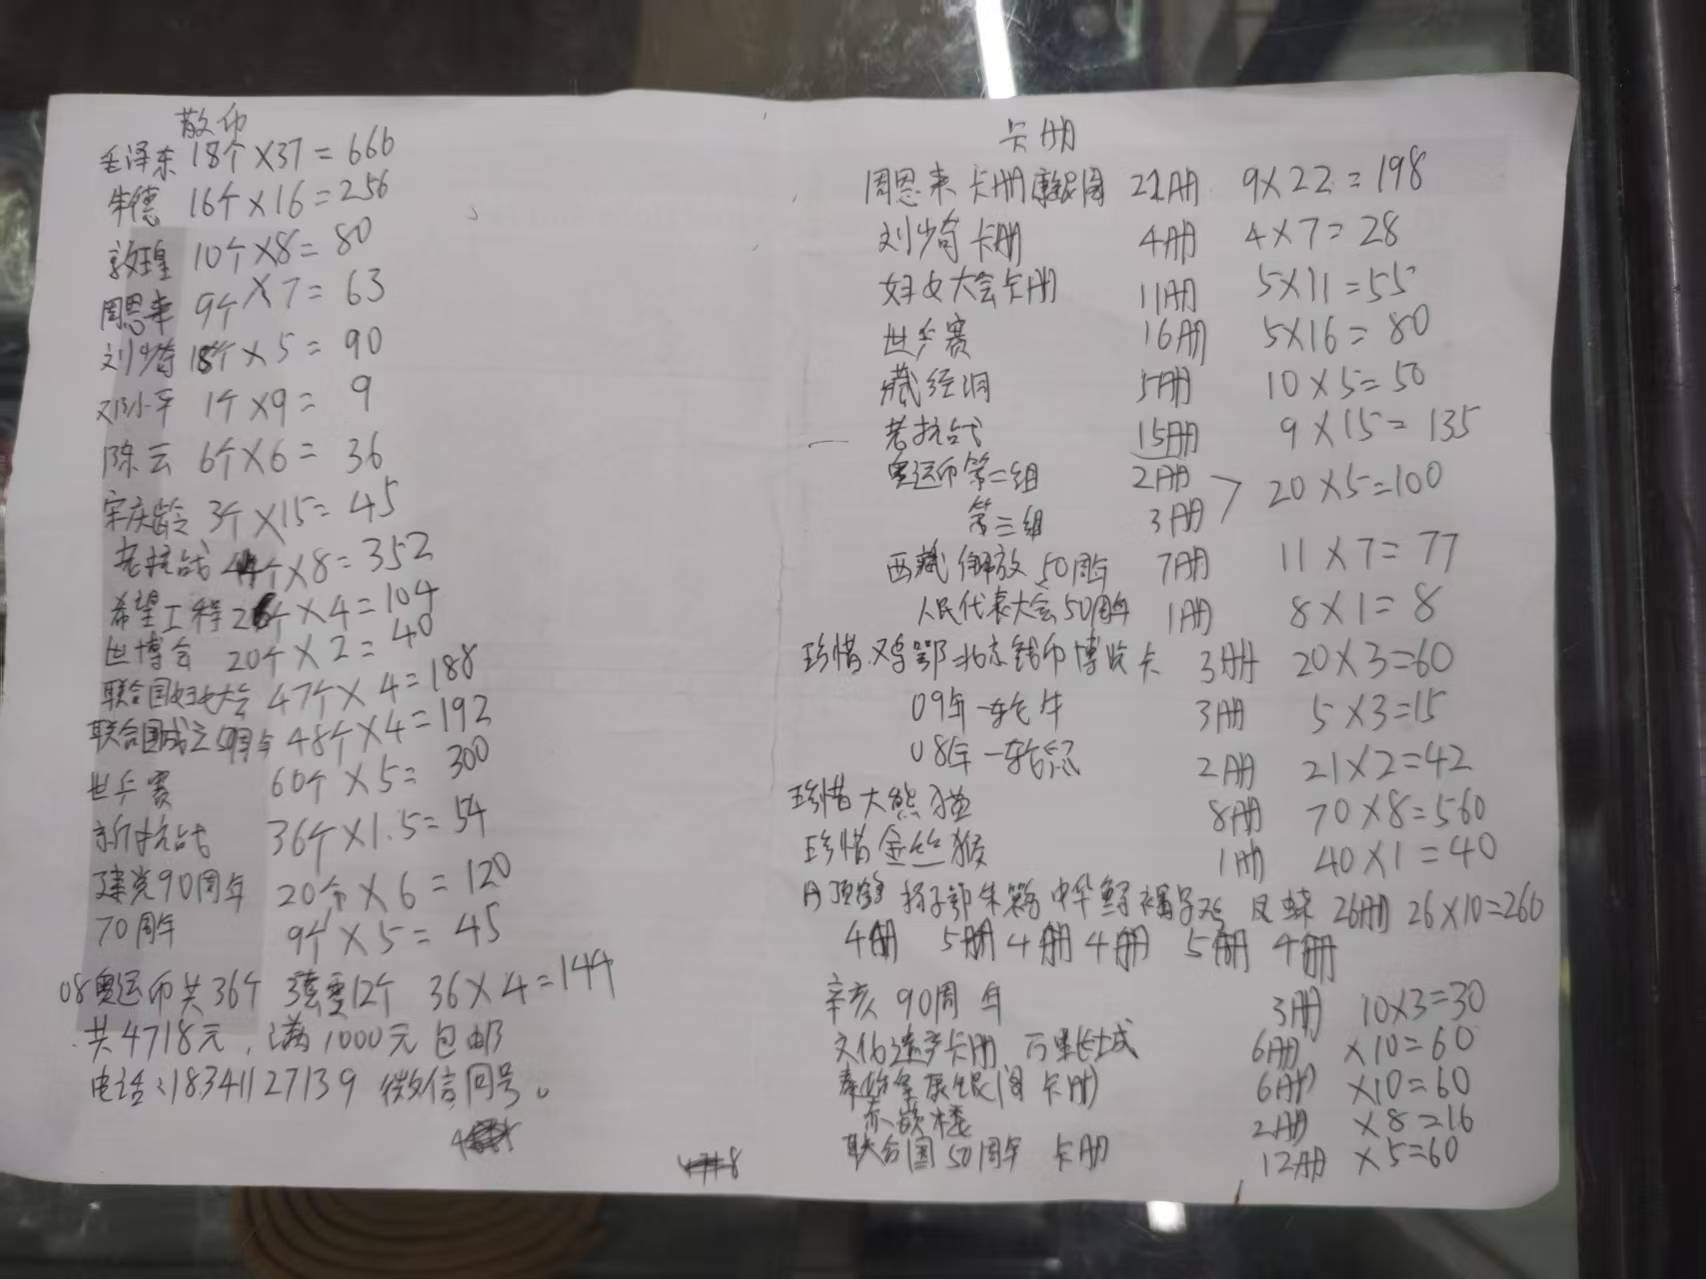 散币
毛泽东 18个×37=666
朱德 16个×16=256
敦煌 10个×8=80
周恩来 9个×7=63
刘少奇 18个×5=90
邓小平 1个×9=9
陈云 6个×6=36
宋庆龄 3个×15=45
老抗战 44个×8=352
希望工程 26个×4=104
世博会 20个×2=40
联合国妇女大会 47个×4=188
联合国成立50周年 48个×4=192
世乒赛 60个×5=300
新抗战 36个×1.5=54
建党90周年 20个×6=120
70周年 9个×5=45
08奥运币共36个 12个 36×4=144
共4718元,满1000元包邮
电话:18341127139 微信同号。
卡册
周恩来卡册康银阁 22册 9×22=198
刘少奇卡册 4册 4×7=28
妇女大会卡册 11册 5×11=55
世乒赛 16册 5×16=80
藏经洞 5册 10×5=50
老抗战 15册 9×15=135
奥运币第二组 2册
第三组 3册 20×5=100
西藏解放50周年 7册 11×7=77
人民代表大会50周年 1册 8×1=8
珍惜.鸡鄂.北京钱币博览卡 3册 20×3=60
09年一轮牛 3册 5×3=15
08年一轮鼠 2册 21×2=42
珍惜大熊猫 8册 70×8=560
珍惜金丝猴 1册 40×1=40
丹顶鹤 杨子鄂 朱鹮 中华鲟 褐马鸡 凤蝶 26册 26×10=260
4册 5册 4册 4册 5册 4册
辛亥90周年 3册 10×3=30
文化遗产卡册 万里长城 6册 ×10=60
秦始皇康银阁卡册 6册 ×10=60
赤嵌楼 2册 ×8=16
联合国50周年 卡册 12册 ×5=60